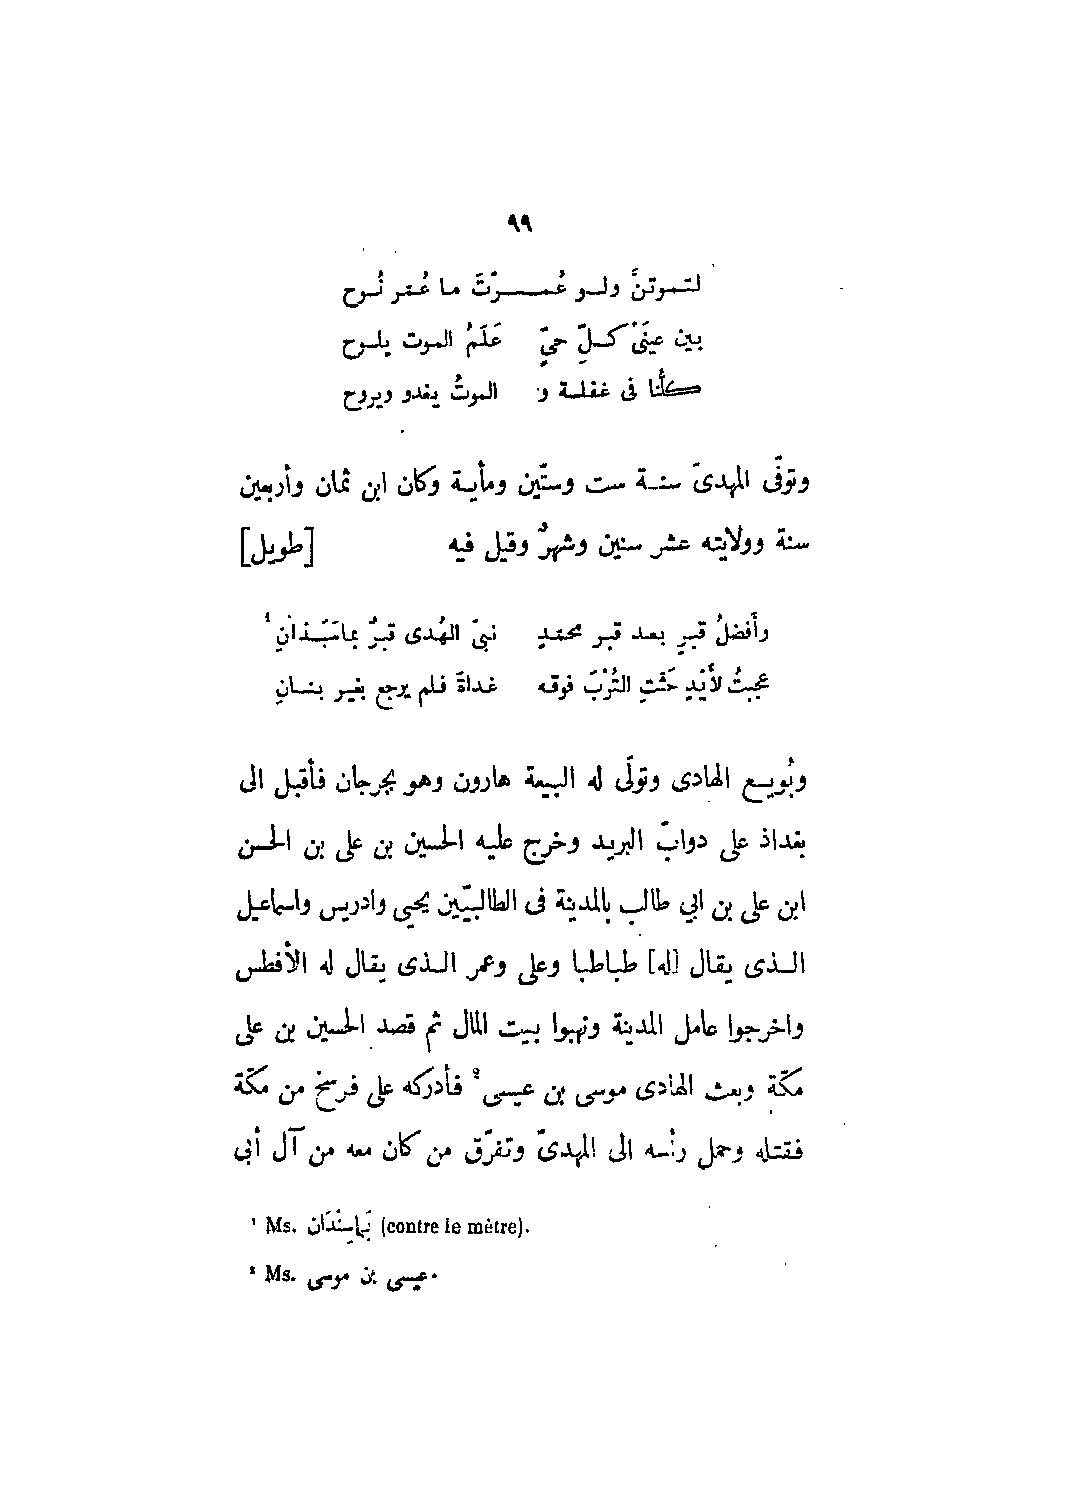 ٩٩
لتموتنَّ ولو عُمّرْتَ ما عُمّر نُوح
بين عينَىْ كلّ حىٍّ عَلَمُ الموت يلوح
كأنا فى غفلة و الموتُ يغدو ويروح
وتوفّى المهدىّ سنة ست وستّين ومأية وكان ابن ثمان وأربعين
سنة وولايته عشر سنين وشهرٌ وقيل فيه [طويل]
وأفضلُ قبرٍ بعد قبر محمّدٍ نبىّ الهُدى قبرٌ بماسَبَذانِ ¹
عجبتُ لأَيْدٍ حَثَتِ التُرْبَ فوقه غداةً فلم يرجع بغير بنانِ
وبُويع الهادى وتولّى له البيعة هارون وهو بجرجان فأقبل الى
بغداذ على دوابّ البريد وخرج عليه الحسين بن على بن الحسن
ابن على بن ابي طالب بالمدينة فى الطالبيّين يحيى وادريس واسماعيل
الذى يقال [له] طباطبا وعلى وعمر الذى يقال له الأفطس
واخرجوا عامل المدينة ونهبوا بيت المال ثم قصد الحسين بن على
مكّة وبعث الهادى موسى بن عيسى ² فأدركه على فرسخ من مكّة
فقتله وحمل رأسه الى المهدىّ وتفرّق من كان معه من آل أبى
¹ Ms. (contre le mètre).
² Ms. عيسى بن موسى.